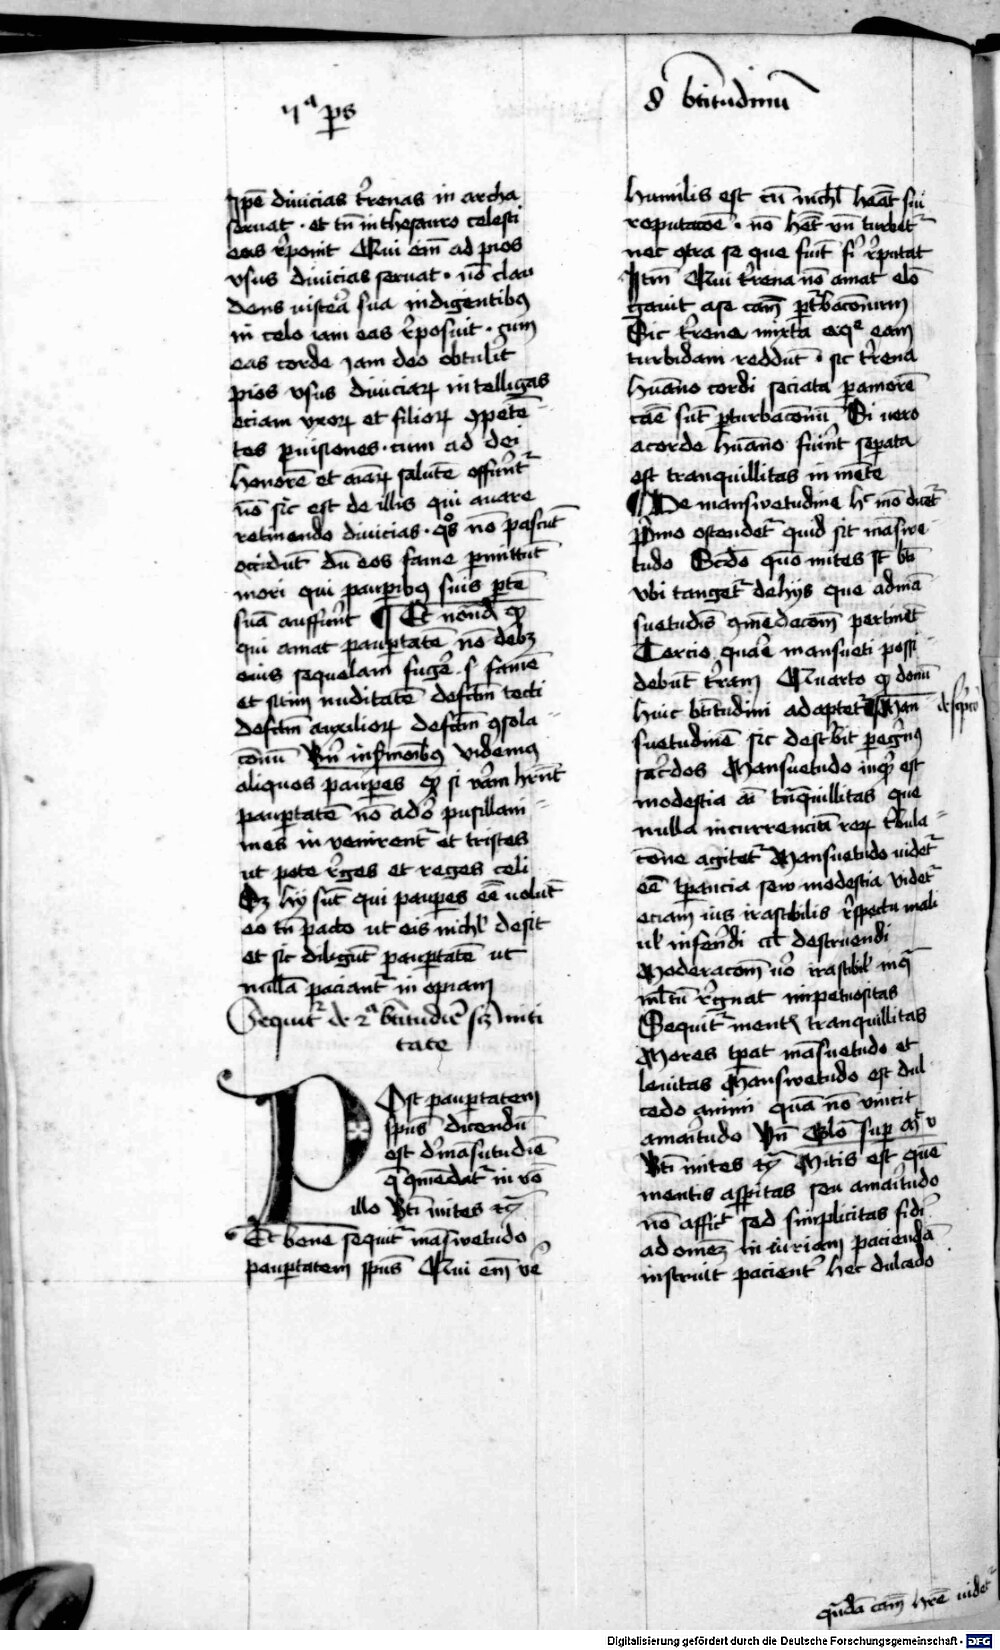 ijª ps
8 btitudinū
Ipē diuicias t'renas in archa
seruat · et tn̄ in thesauro celesti
eas r̄ponit Qui em̄ ad pios
vsus diuicias seruat · nō clau
dens viscera sua indigentibꝫ
in celo iam eas r̄posuit · cum
eas corde iam deo obtulit
pios vsus diuiciaꝝ intelligas
eciam vxoꝝ et filioꝝ ꝯpetē
tes ꝓuisiones · cum ad dei
honorē et aīaꝝ salutē
nō sic est de illis qui auare
retinendo diuicias · qͦs nō pascūt
occidūt dū eos fame ꝑmittūt
mori qui pauꝑibꝫ suis ꝑtē
suā auffer̄t ¶ Et nōnd ꝙ
qui amat pauꝑtatē nō debꝫ
eius sequelam fugē · s famē
et sitim nuditatē defctm̄ tecti
defctm̄ auxilioꝝ defctm̄ ꝯsola
cōnū Vn̄ videmꝫ
aliquos pauꝑes ꝙ si
pauꝑtatē nō adō pusillani
mes in venirent' et tristes
ut pote r̄ges et reges celi
Sꝫ hij sūt qui pauꝑes eē volūt
eo tn̄ pacto ut eis nichl desit
et sic diligūt pauꝑtatē ut
nullā paciant' in opiam
Sequit' de 2ª btitudīe sꝫ miti
tate
Post pauꝑtatem
spūs dicendū
est
q̄ ꝯmēdat' in vō
illo Bti mites ⁊c̄
Et bene sequit' māswetudo
pauꝑtatem spūs Qui em̄ vē
humilis est cū nichl heāt sui
reputacōē · nō hēt vn̄ turbet'
nec ꝯtra se que fuīt sī r̄putat
Itm̄ Qui t'rena nō amat elō
gauit a se cām ꝑt'bacionum
Sic t'rena mixta aqͣ eam
turbidam reddūt · sic t'rena
hūano cordi sociata ꝑ amorē
cāe sūt ꝑturbacōnū Si vero
a corde hūano fuīnt seꝑata
est tranquillitas in mēte
¶ De manswetudine hͨ mō
pͥmo ostendet' quid sit māswe
tudo Scdō quō mites st bti
vbi tanget' de hijs que ad mā
suetudīs ꝯmēdacōm pertinēt
Tercio quāe mansueti possi
debūt t'ram Quarto ꝙ donū
huic btitudini adaptet' Man
suetudinē sic describit pegͥnꝫ
sacͬdos Mansuetudo inqͥt est
modestia aī tn̄quillitas que
nulla incurrencia reꝝ t'bula
cōne agitet' Mansuetudo videt'
eē tꝑancia seu modestia videt'
eciam ius irascibilis r̄spectu mali
ul inferendi destruendi
Moderacōm vō irascibil inqͣ
ml̄tū r̄gnat impetuositas
Sequit' ment tranquillitas
Mores tꝑat māsuetudo et
leuitas Manswetudo est dul
cedo animi quā nō vincit
amaritudo Vn̄ Glō suꝑ Mt v
Bti mites ⁊c̄ Mitis est quē
mentis asꝑitas seu amaritudo
nō afficit sed simplicitas fidi
ad om̄eꝫ in iuriam paciendā
instruit pacient' hec dulcedo
qͣdā cām hrē videt'